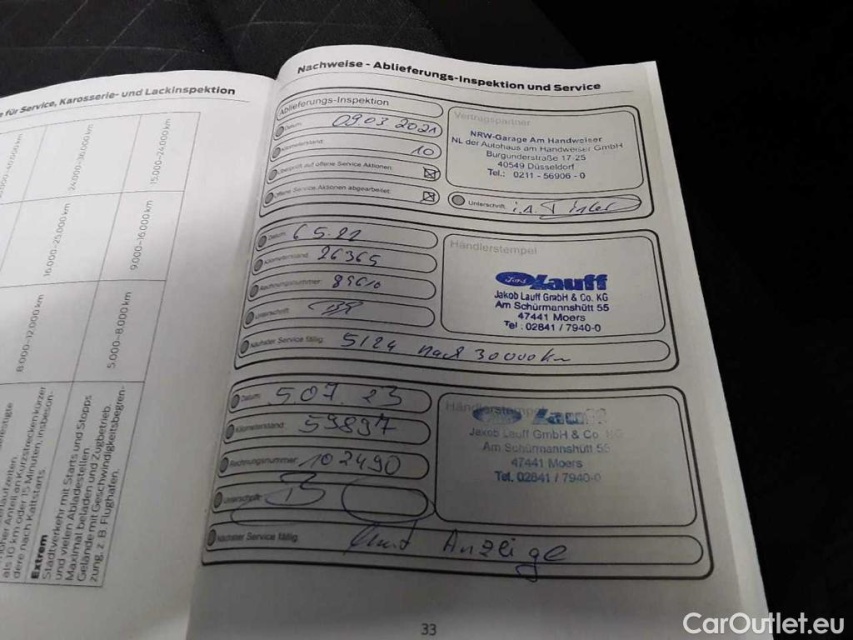 e für Service, Karosserie- und Lackinspektion
24.000–30.000 km
15.000–24.000 km
16.000–25.000 km
9.000–16.000 km
8.000–12.000 km
5.000–8.000 km
als 10 km oder 15 Minuten, insbeson-
dere nach Kaltstarts
Extrem
Stadtverkehr mit Starts und Stopps
und vielen Abladestellen
Maximal beladen und Zugbetrieb
Gelände mit Geschwindigkeitsbegren-
zung, z. B. Flughafen.
Nachweise - Ablieferungs-Inspektion und Service
Ablieferungs-Inspektion
Datum 09.03.2021
Kilometerstand 10
offene Service Aktionen
offene Service Aktionen abgearbeitet
Vertragspartner
NRW-Garage Am Handweiser
NL der Autohaus am Handweiser GmbH
Burgunderstraße 17-25
40549 Düsseldorf
Tel.: 0211 - 56906 - 0
Unterschrift
Datum 6 5.22
Kilometerstand 26365
Rechnungsnummer
Unterschrift
Nächster Service fällig 5/24 nach 30000 km
Händlerstempel
Ford Lauff
Jakob Lauff GmbH & Co. KG
Am Schürmannshütt 55
47441 Moers
Tel. 02841 / 7940-0
Datum 5.07.23
Kilometerstand 59897
Rechnungsnummer 102490
Unterschrift
Nächster Service fällig laut Anzeige
Händlerstempel
Lauff
Jakob Lauff GmbH & Co. KG
Am Schürmannshütt 55
47441 Moers
Tel. 02841 / 7940-0
33
CarOutlet.eu